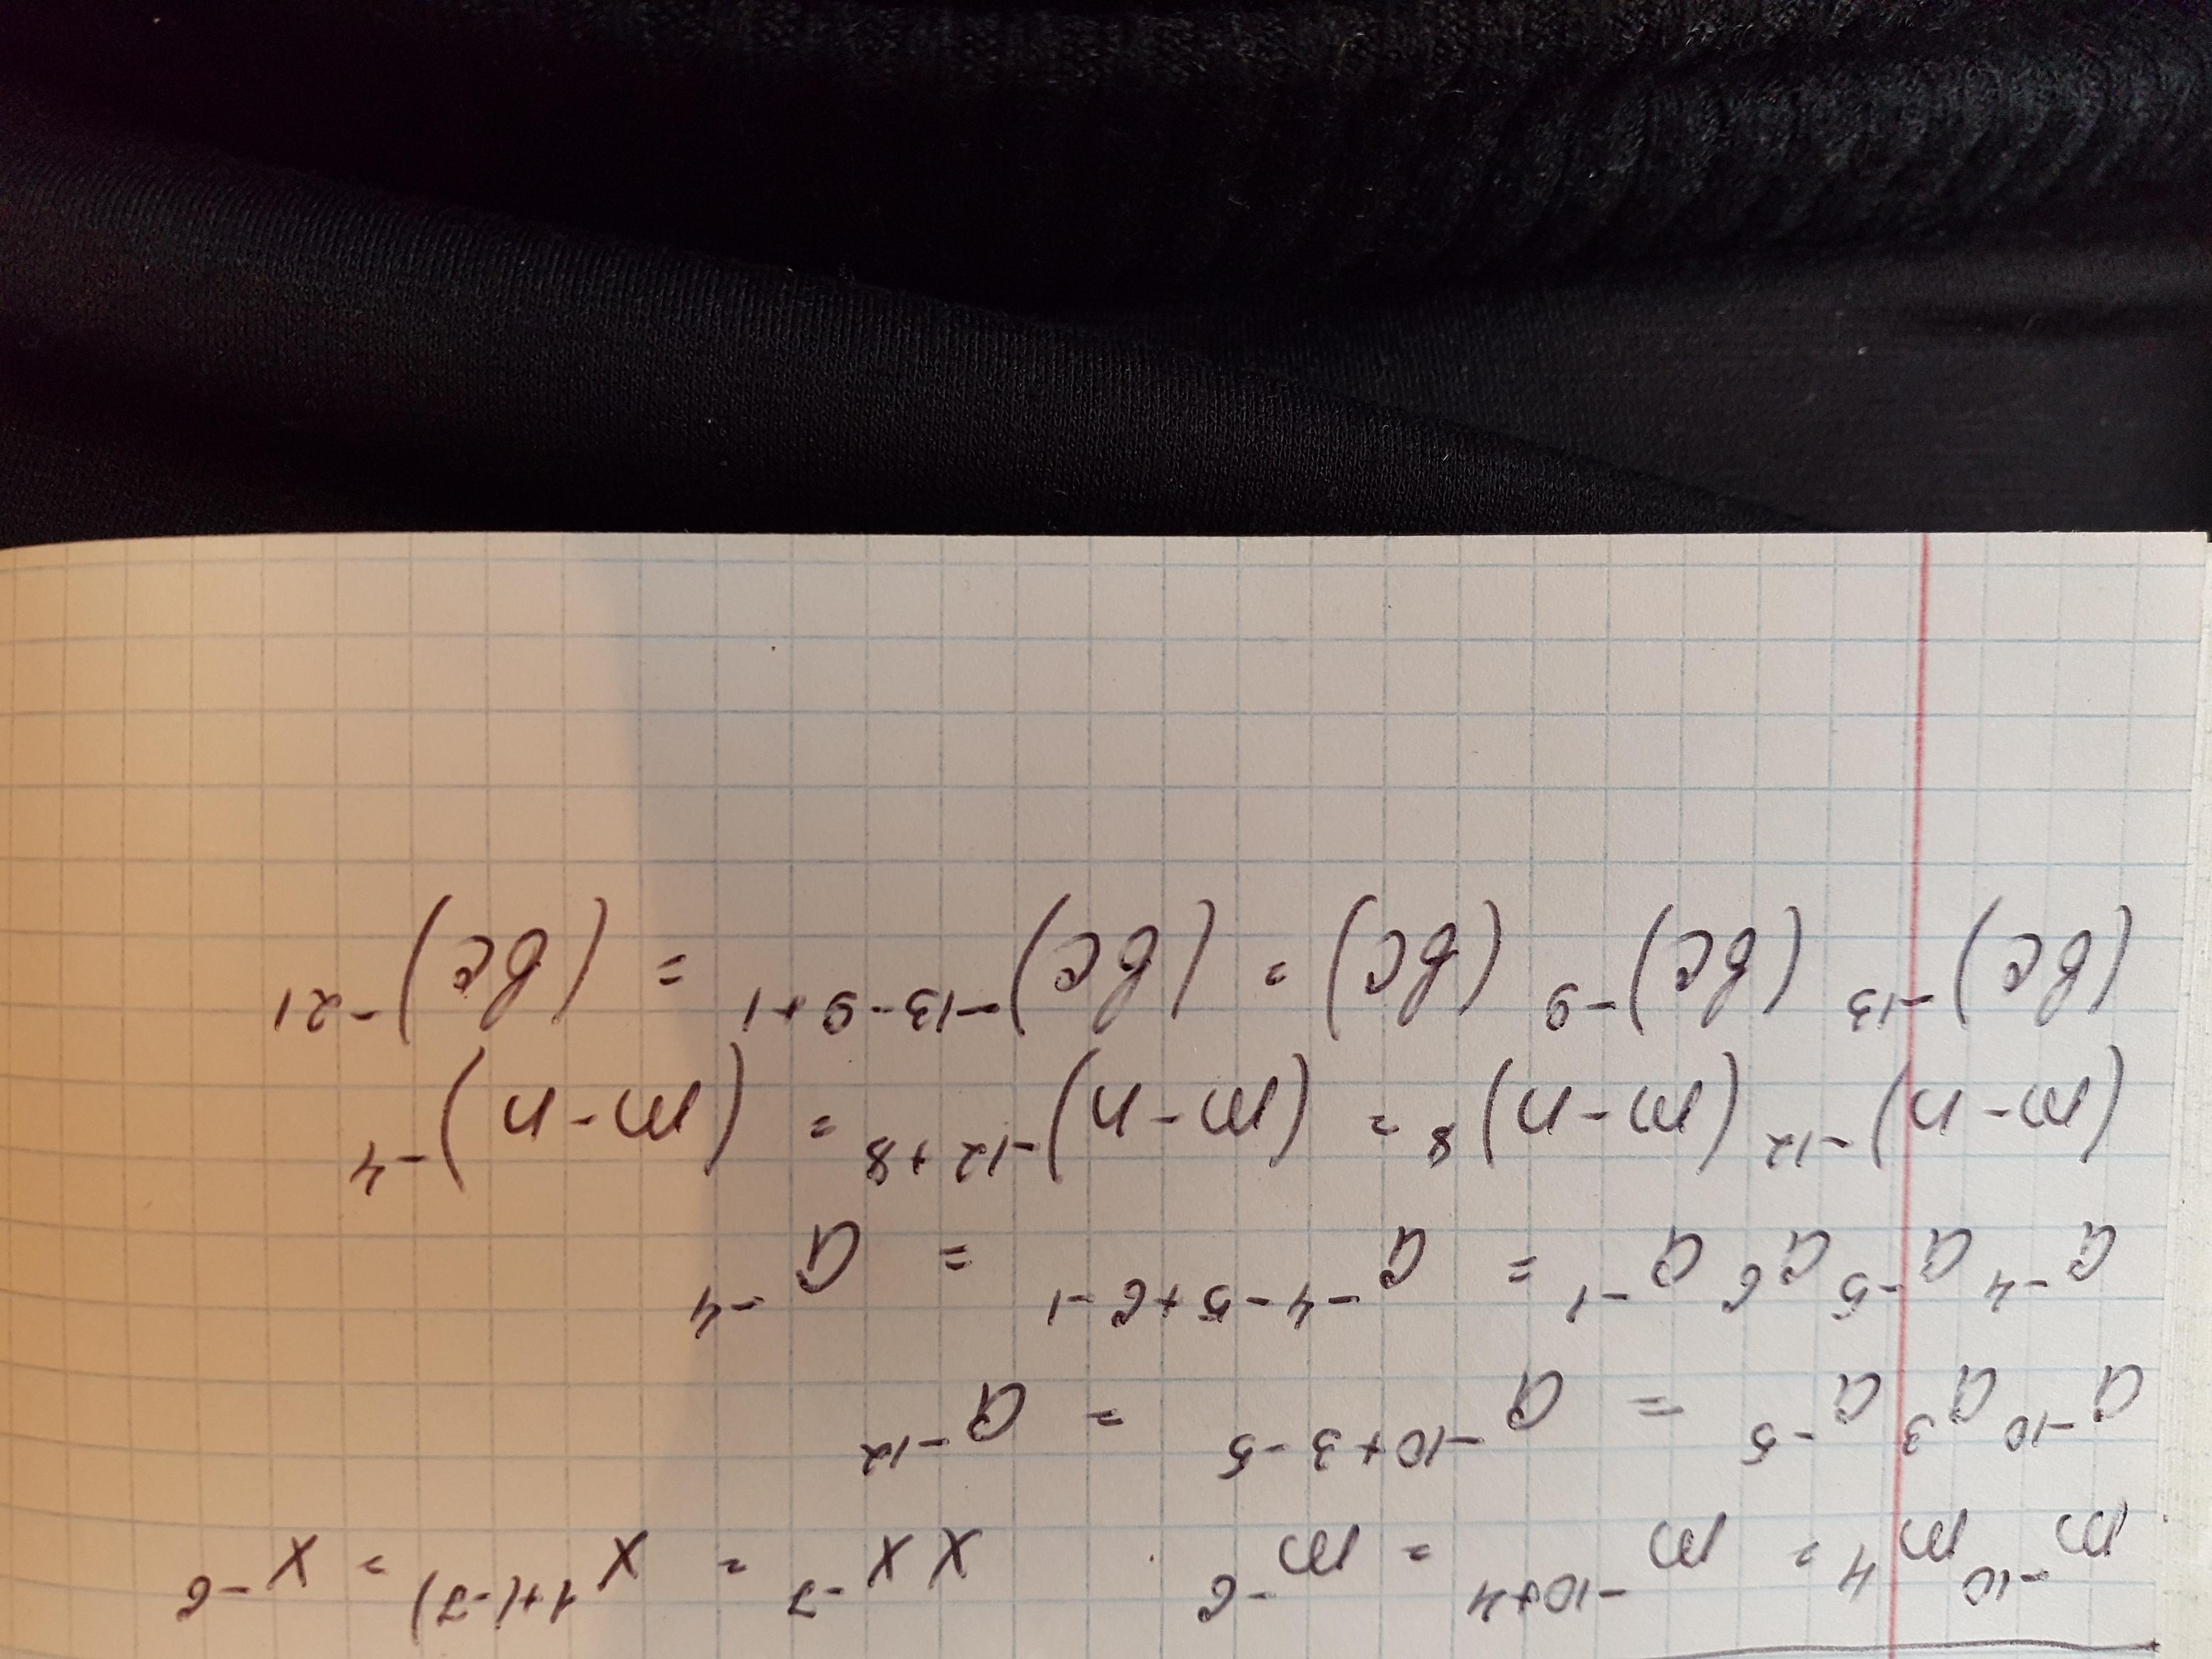 m⁻¹⁰ m⁴ = m⁻¹⁰⁺⁴ = m⁻⁶ x x⁻⁷ = x¹⁺⁽⁻⁷⁾ = x⁻⁶
a⁻¹⁰ a³ a⁻⁵ = a⁻¹⁰⁺³⁻⁵ = a⁻¹²
a⁻⁴ a⁻⁵ a⁶ a⁻¹ = a⁻⁴⁻⁵⁺⁶⁻¹ = a⁻⁴
(m-n)⁻¹² (m-n)⁸ = (m-n)⁻¹²⁺⁸ = (m-n)⁻⁴
(bc)⁻¹³ (bc)⁻⁹ (bc) = (bc)⁻¹³⁻⁹⁺¹ = (bc)⁻²¹